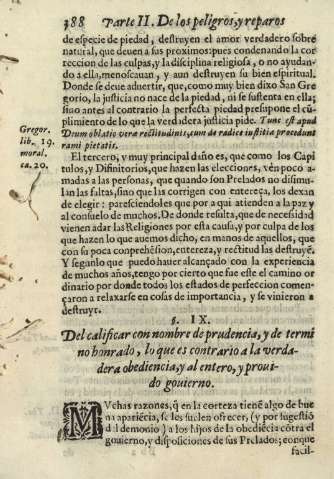 388 Parte II. De los peligros, y reparos
de especie de piedad, destruyen el amor verdadero sobre
natural, que deuen a sus proximos: pues condenando la cor
reccion de las culpas, y la disciplina religiosa, o no ayudan-
do a ella, menoscauan, y aun destruyen su bien espiritual.
Donde se deue aduertir, que, como muy bien dixo San Gre
gorio, la justicia no nace de la piedad, ni se sustenta en ella;
sino antes al contrario la perfecta piedad presupone el cū-
plimiento de lo que la verdadera justicia pide. Tunc est apud
Drum oblatio vera rectitudinis, cum de radice iustitiæ procedunt
rami pietatis.
Gregor.
lib. 19.
moral.
ca. 20.
El tercero, y muy principal daño es, que como los Capi
tulos, y Difinitorios, que hazen las elecciones, vēn poco a-
madas a las personas, que quando son Prelados no disimu-
lan las faltas, sino que las corrigen con entereça, los dexan
de elegir: paresciendoles que por a qui atienden a la paz y
al consuelo de muchos. De donde resulta, que de necesidad
vienen a dar las Religiones por esta causa, y por culpa de los
que hazen lo que auemos dicho, en manos de aquellos, que
con su poca comprehēsion, entereza, y rectitud las destruyē.
Y segun lo que puedo hauer alcançado con la experiencia
de muchos años, tengo por cierto que fue este el camino or
dinario por donde todos los estados de perfeccion comen-
çaron a relaxarse en cosas de importancia, y se vinieron a
destruyr.
§. IX.
Del calificar con nombre de prudencia, y de termi
no honrado, lo que es contrario a la verda-
dera obediencia, y al entero, y proui-
do gouierno.
MVchas razones, q̄ en la corteza tienē algo de bue
na apariēcia, se les suelen ofrecer, (y por sugestiō
dl demonio) a los hijos de la obediēcia cōtra el
gouierno, y disposiciones de sus Prelados; con que
facil-